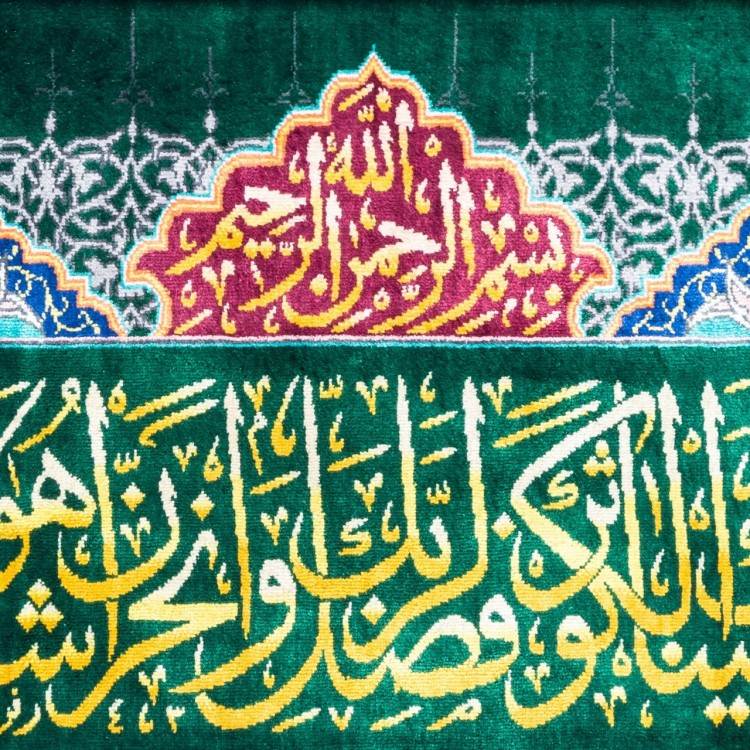 بسم الله الرحمن الرحيم
ينك الكوثر فصل لربك وانحر ان